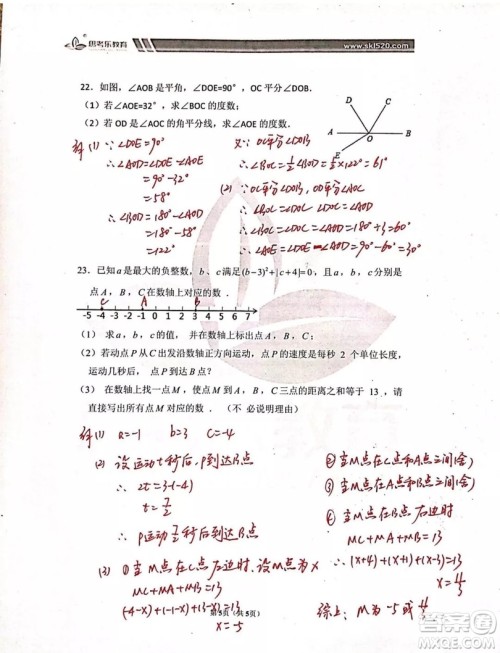 思考乐教育
www.skl520.com
22. 如图，∠AOB 是平角，∠DOE=90°，OC 平分∠DOB.
（1）若∠AOE=32°，求∠BOC 的度数；
（2）若 OD 是∠AOC 的角平分线，求∠AOE 的度数.
D C
A O B
E
解(1) ∵∠DOE=90°
∴∠AOD=∠DOE-∠AOE
=90°-32°
=58°
∴∠BOD=180°-∠AOD
=180°-58°
=122°
又∵OC平分∠DOB
∴∠BOC=½∠BOD=½×122°=61°
(2) ∵OC平分∠DOB, OD平分∠AOC
∴∠BOC=∠DOC=∠AOD=180°÷3=60°
∴∠AOE=∠DOE-∠AOD=90°-60°=30°
23. 已知a是最大的负整数，b、c满足(b-3)²+|c+4|=0，且a，b，c分别是
点A，B，C在数轴上对应的数．
C A B
-5 -4 -3 -2 -1 0 1 2 3 4 5
（1） 求a，b，c的值， 并在数轴上标出点A，B，C；
（2）若动点P从C出发沿数轴正方向运动，点P的速度是每秒 2 个单位长度，
运动几秒后， 点P到达B点？
（3） 在数轴上找一点M，使点M到A，B，C三点的距离之和等于 13 ，请
直接写出所有点M对应的数．（不 必说明理由）
解(1) a=-1 b=3 c=-4
(2) 设运动t秒后,P到达B点
∴ 2t=3-(-4)
t=7/2
∴ P运动7/2秒后到达B点
(3) ①当M点在C点左边时,设M点为x
MC+MA+MB=13
(-4-x)+(-1-x)+(3-x)=13
x=-5
②当M点在C点和A点之间(舍)
③当M点在A点和B点之间(舍)
④当M点在B点右边时
MC+MA+MB=13
∴ (x+4)+(x+1)+(x-3)=13
x=
综上: M为-5或
第5页（共5页）